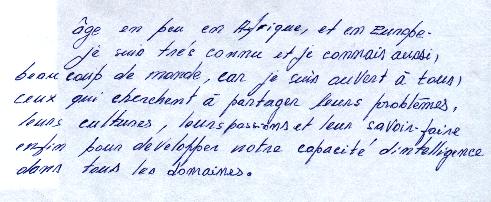 âge en peu en Afrique, et en Europe.
je suis très connu et je connais aussi,
beaucoup de monde, car je suis ouvert à tous,
ceux qui cherchent à partager leurs problèmes,
leurs cultures, leurs passions et leur savoir-faire
enfin pour développer notre capacité d'intelligence
dans tous les domaines.